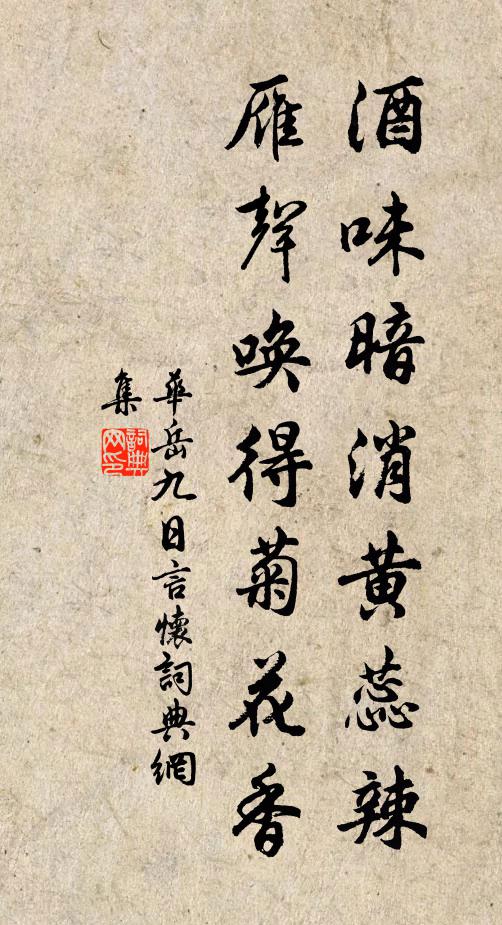 酒味暗消黄蕊辣
雁聲唤得菊花香
華岳九日言懷詞典網
集
詞典网印